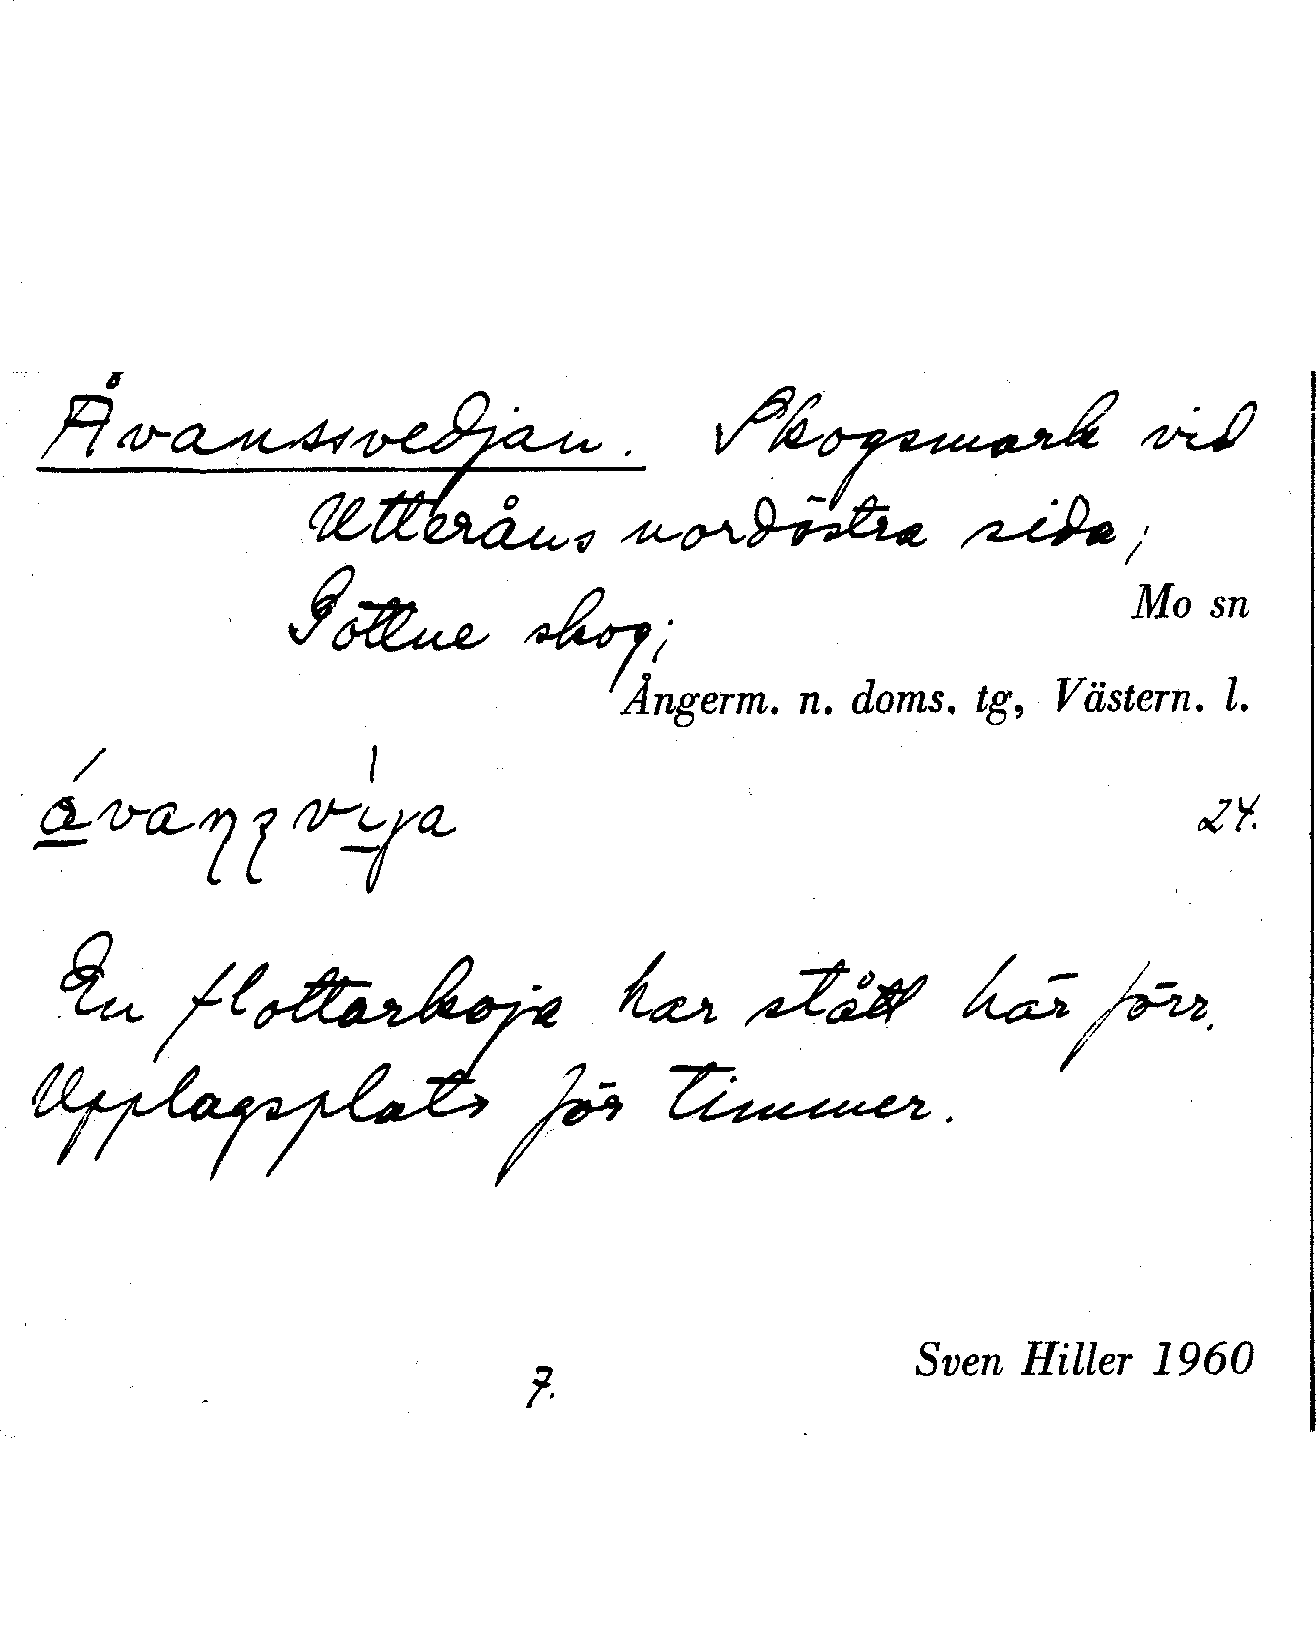 Åvanssvedjan. Skogsmark vid
Utteråns nordöstra sida;
Gottne skog; Mo sn
Ångerm. n. doms. tg, Västern. l.
24.
En flottarkoja har stått här förr.
Upplagsplats för timmer.
7. Sven Hiller 1960